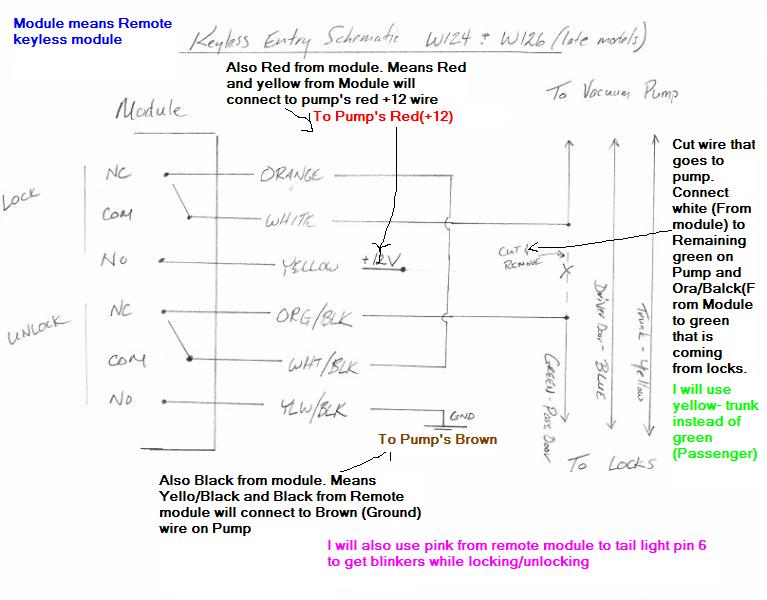 Module means Remote
keyless module
Keyless Entry Schematic W124 & W126 (late models)
Also Red from module. Means Red
and yellow from Module will
connect to pump's red +12 wire
To Pump's Red(+12)
To Vacuum Pump
Module
Cut wire that
goes to
pump.
Connect
white (From
module) to
Remaining
green on
Pump and
Ora/Balck(F
rom Module
to green
that is
coming
from locks.
LOCK
NC
ORANGE
COM
WHITE
NO
YELLOW
+12V
CUT &
REMOVE
UNLOCK
NC
ORG/BLK
COM
WHT/BLK
NO
YLW/BLK
GND
GREEN - Pass Door
Driver Door - BLUE
Trunk - Yellow
I will use
yellow- trunk
instead of
green
(Passenger)
To Pump's Brown
To Locks
Also Black from module. Means
Yello/Black and Black from Remote
module will connect to Brown (Ground)
wire on Pump
I will also use pink from remote module to tail light pin 6
to get blinkers while locking/unlocking